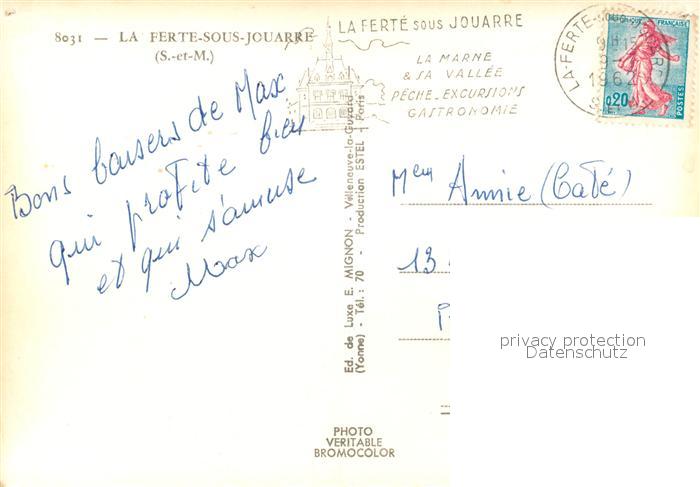 8031 — LA FERTE-SOUS-JOUARRE
(S.-et-M.)
LA FERTÉ SOUS JOUARRE
LA MARNE
& SA VALLÉE
PÊCHE_EXCURSIONS
GASTRONOMIE
LA-FERTE-SOUS-
1962
RÉPUBLIQUE FRANÇAISE
0,20
POSTES
Bons baisers de Max
qui profite bien
et qui s'amuse
Max
Ed. de Luxe E. MIGNON - Villeneuve-la-Guyard
(Yonne) - Tél.: 70 - Production ESTEL - Paris
Annie (Caté)
13
privacy protection
Datenschutz
PHOTO
VERITABLE
BROMOCOLOR